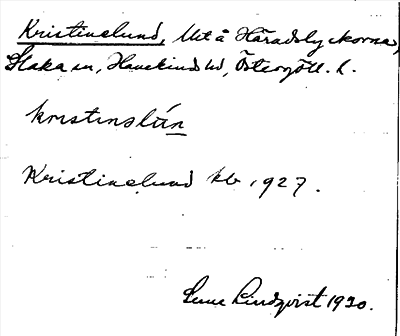 Kristinelund, Utt å Häradslyckorna,
Slaka sn, Hanekinds hd, Östergötl. l.
krɩstɩnslún
Kristinelund kb 1927.
Sune Lindqvist 1930.